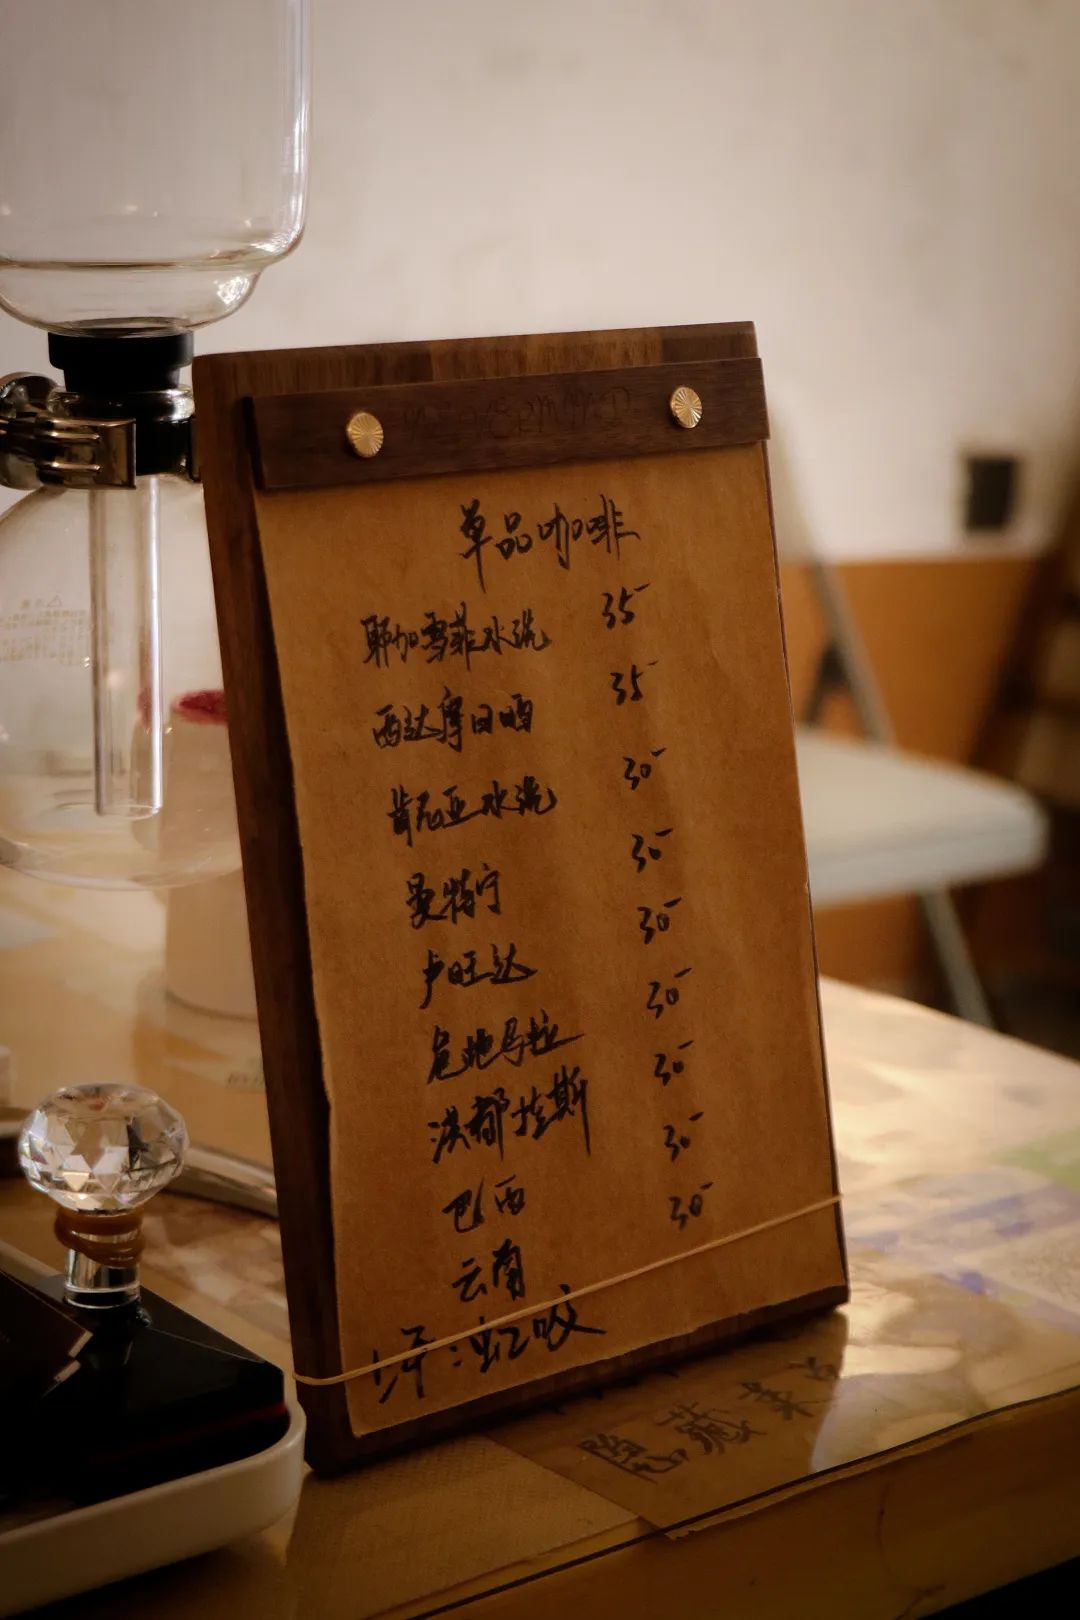 单品咖啡
耶加雪菲水洗 35
西达摩日晒 35
肯尼亚水洗 30
曼特宁 30
卢旺达 30
危地马拉 30
洪都拉斯 30
巴西 30
云南 30
虹吸
隐藏菜单